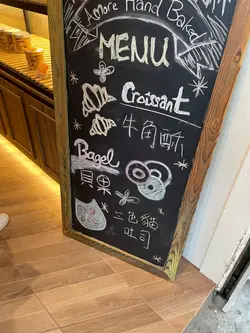 Amore Hand Baked
MENU
Croissant
牛角酥
Bagel
貝果
三色貓
吐司